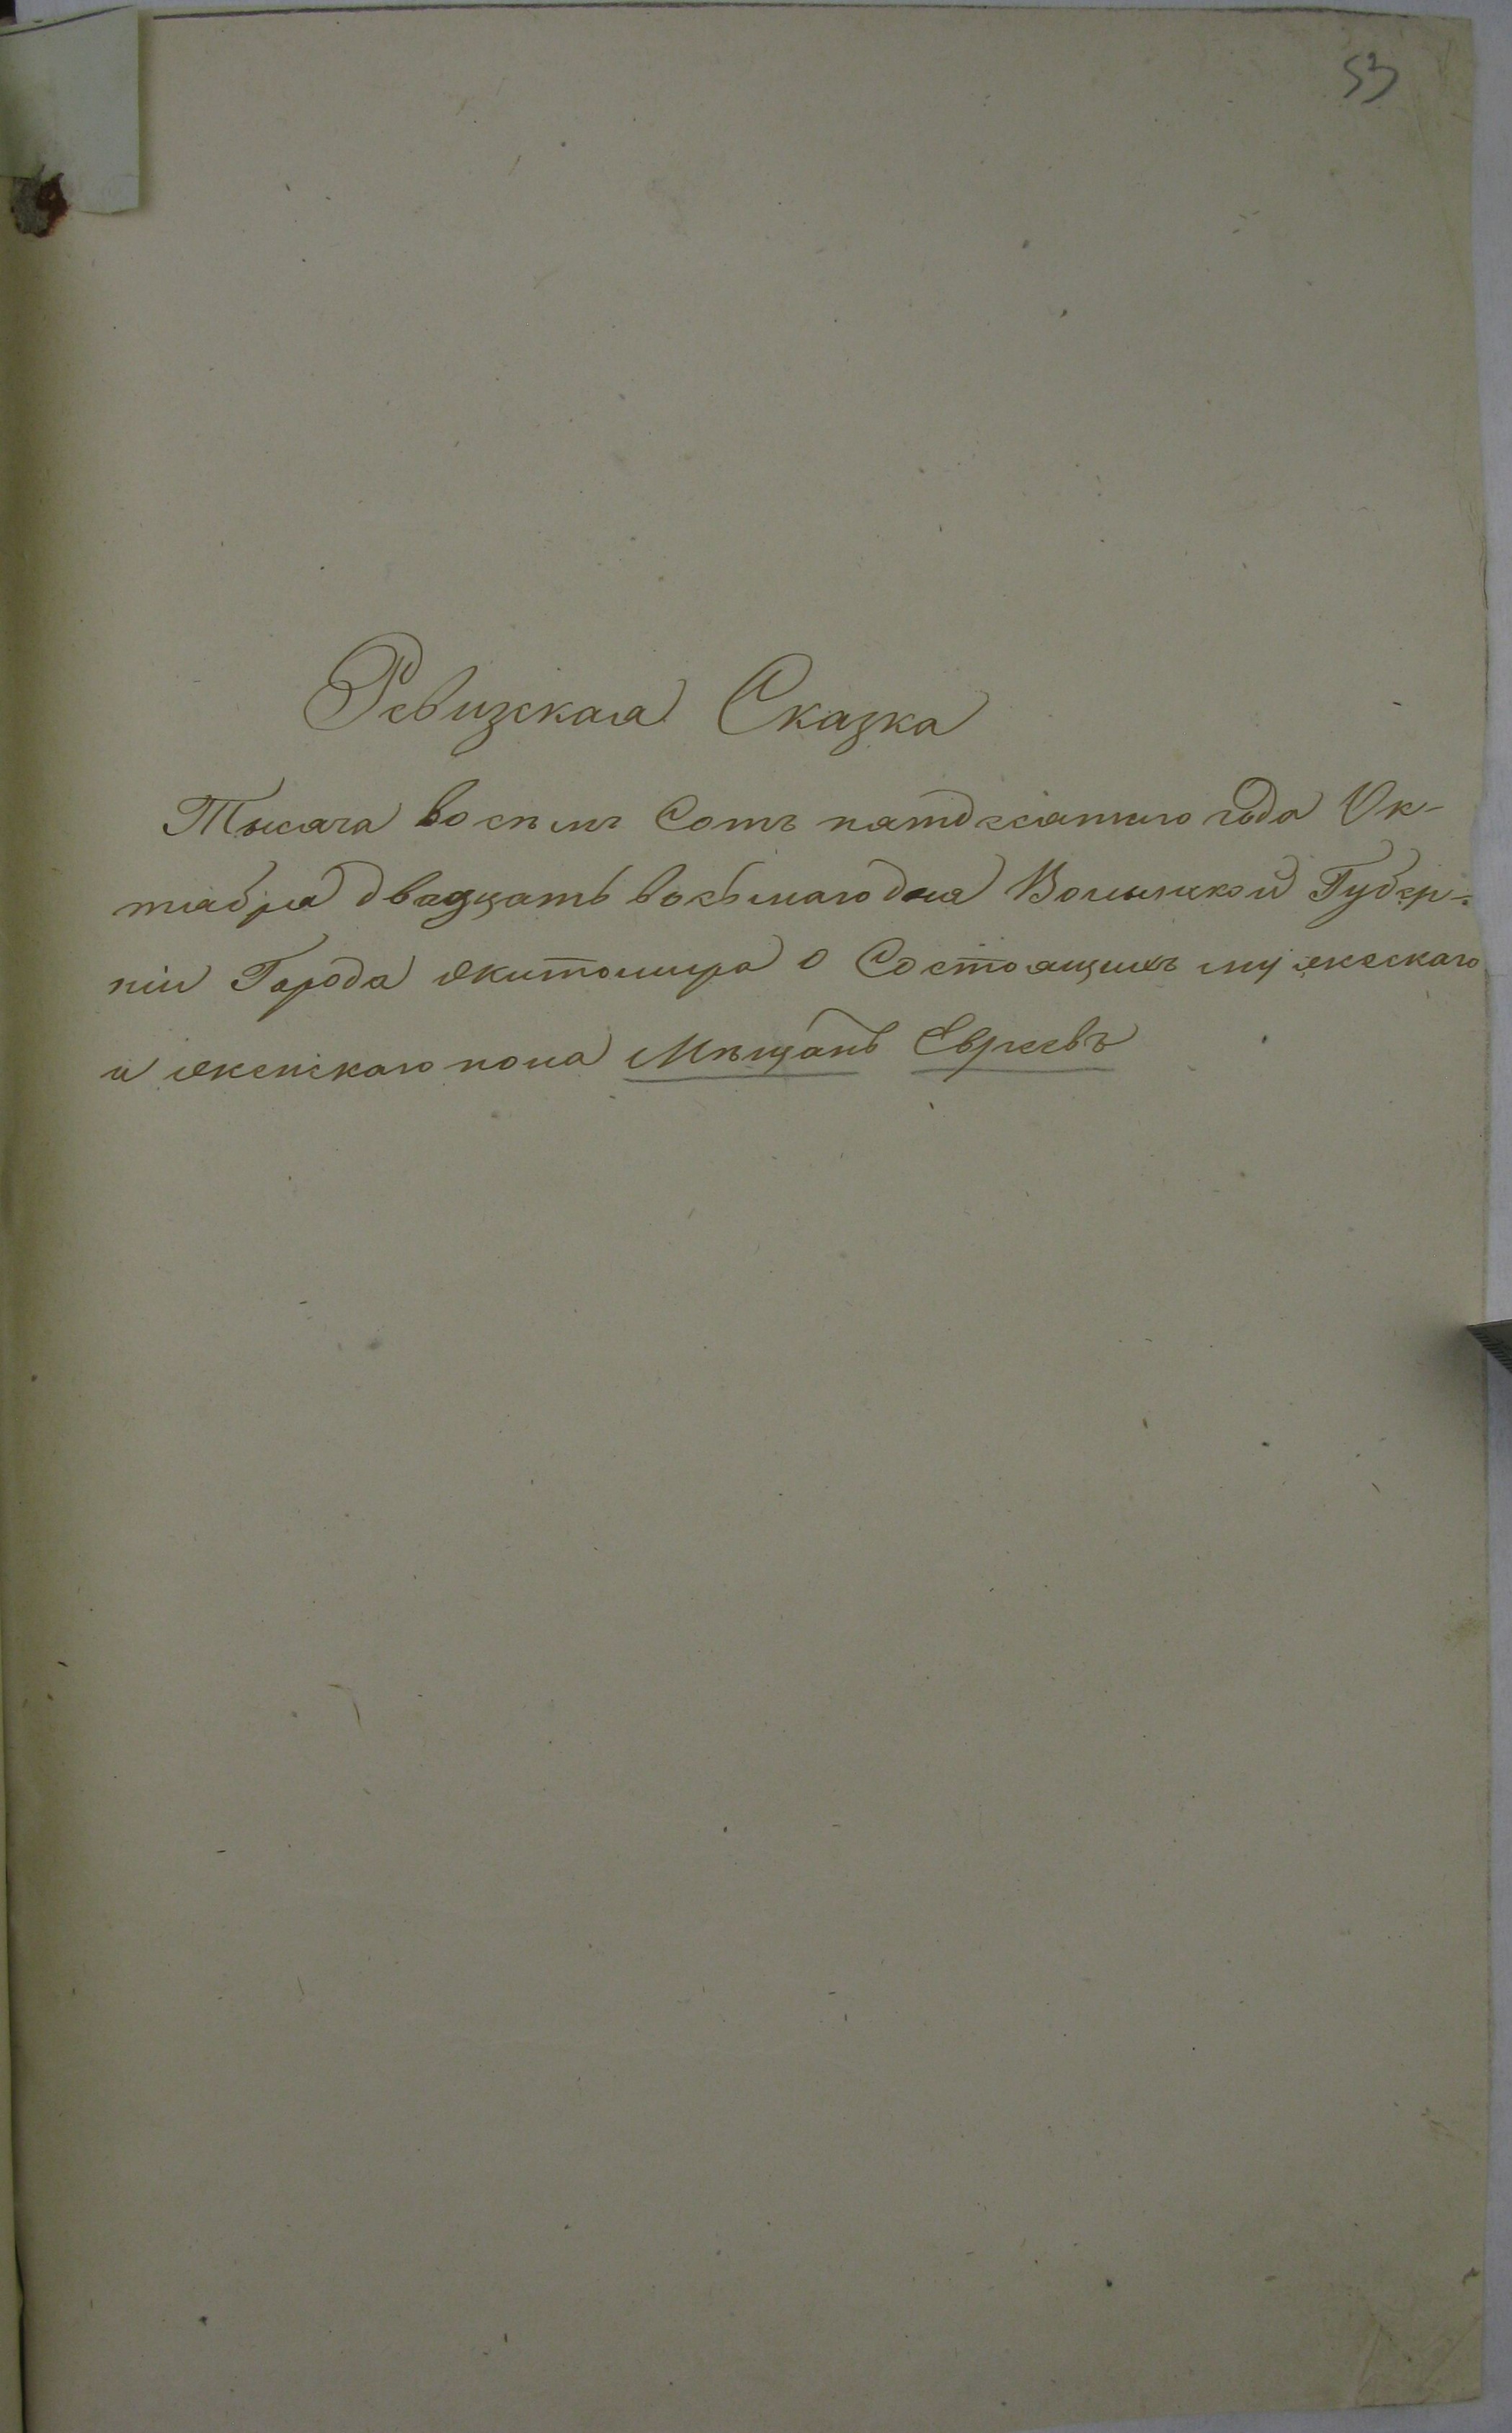 53
Ревизская Сказка
Тысяча восемь Сотъ пятдесятого года Ок-
тября двадцать восьмаго дня Волынской Губер-
ніи Города Житомира о Состоящихъ мужескаго
и женскаго пола Мѣщанъ Евреевъ